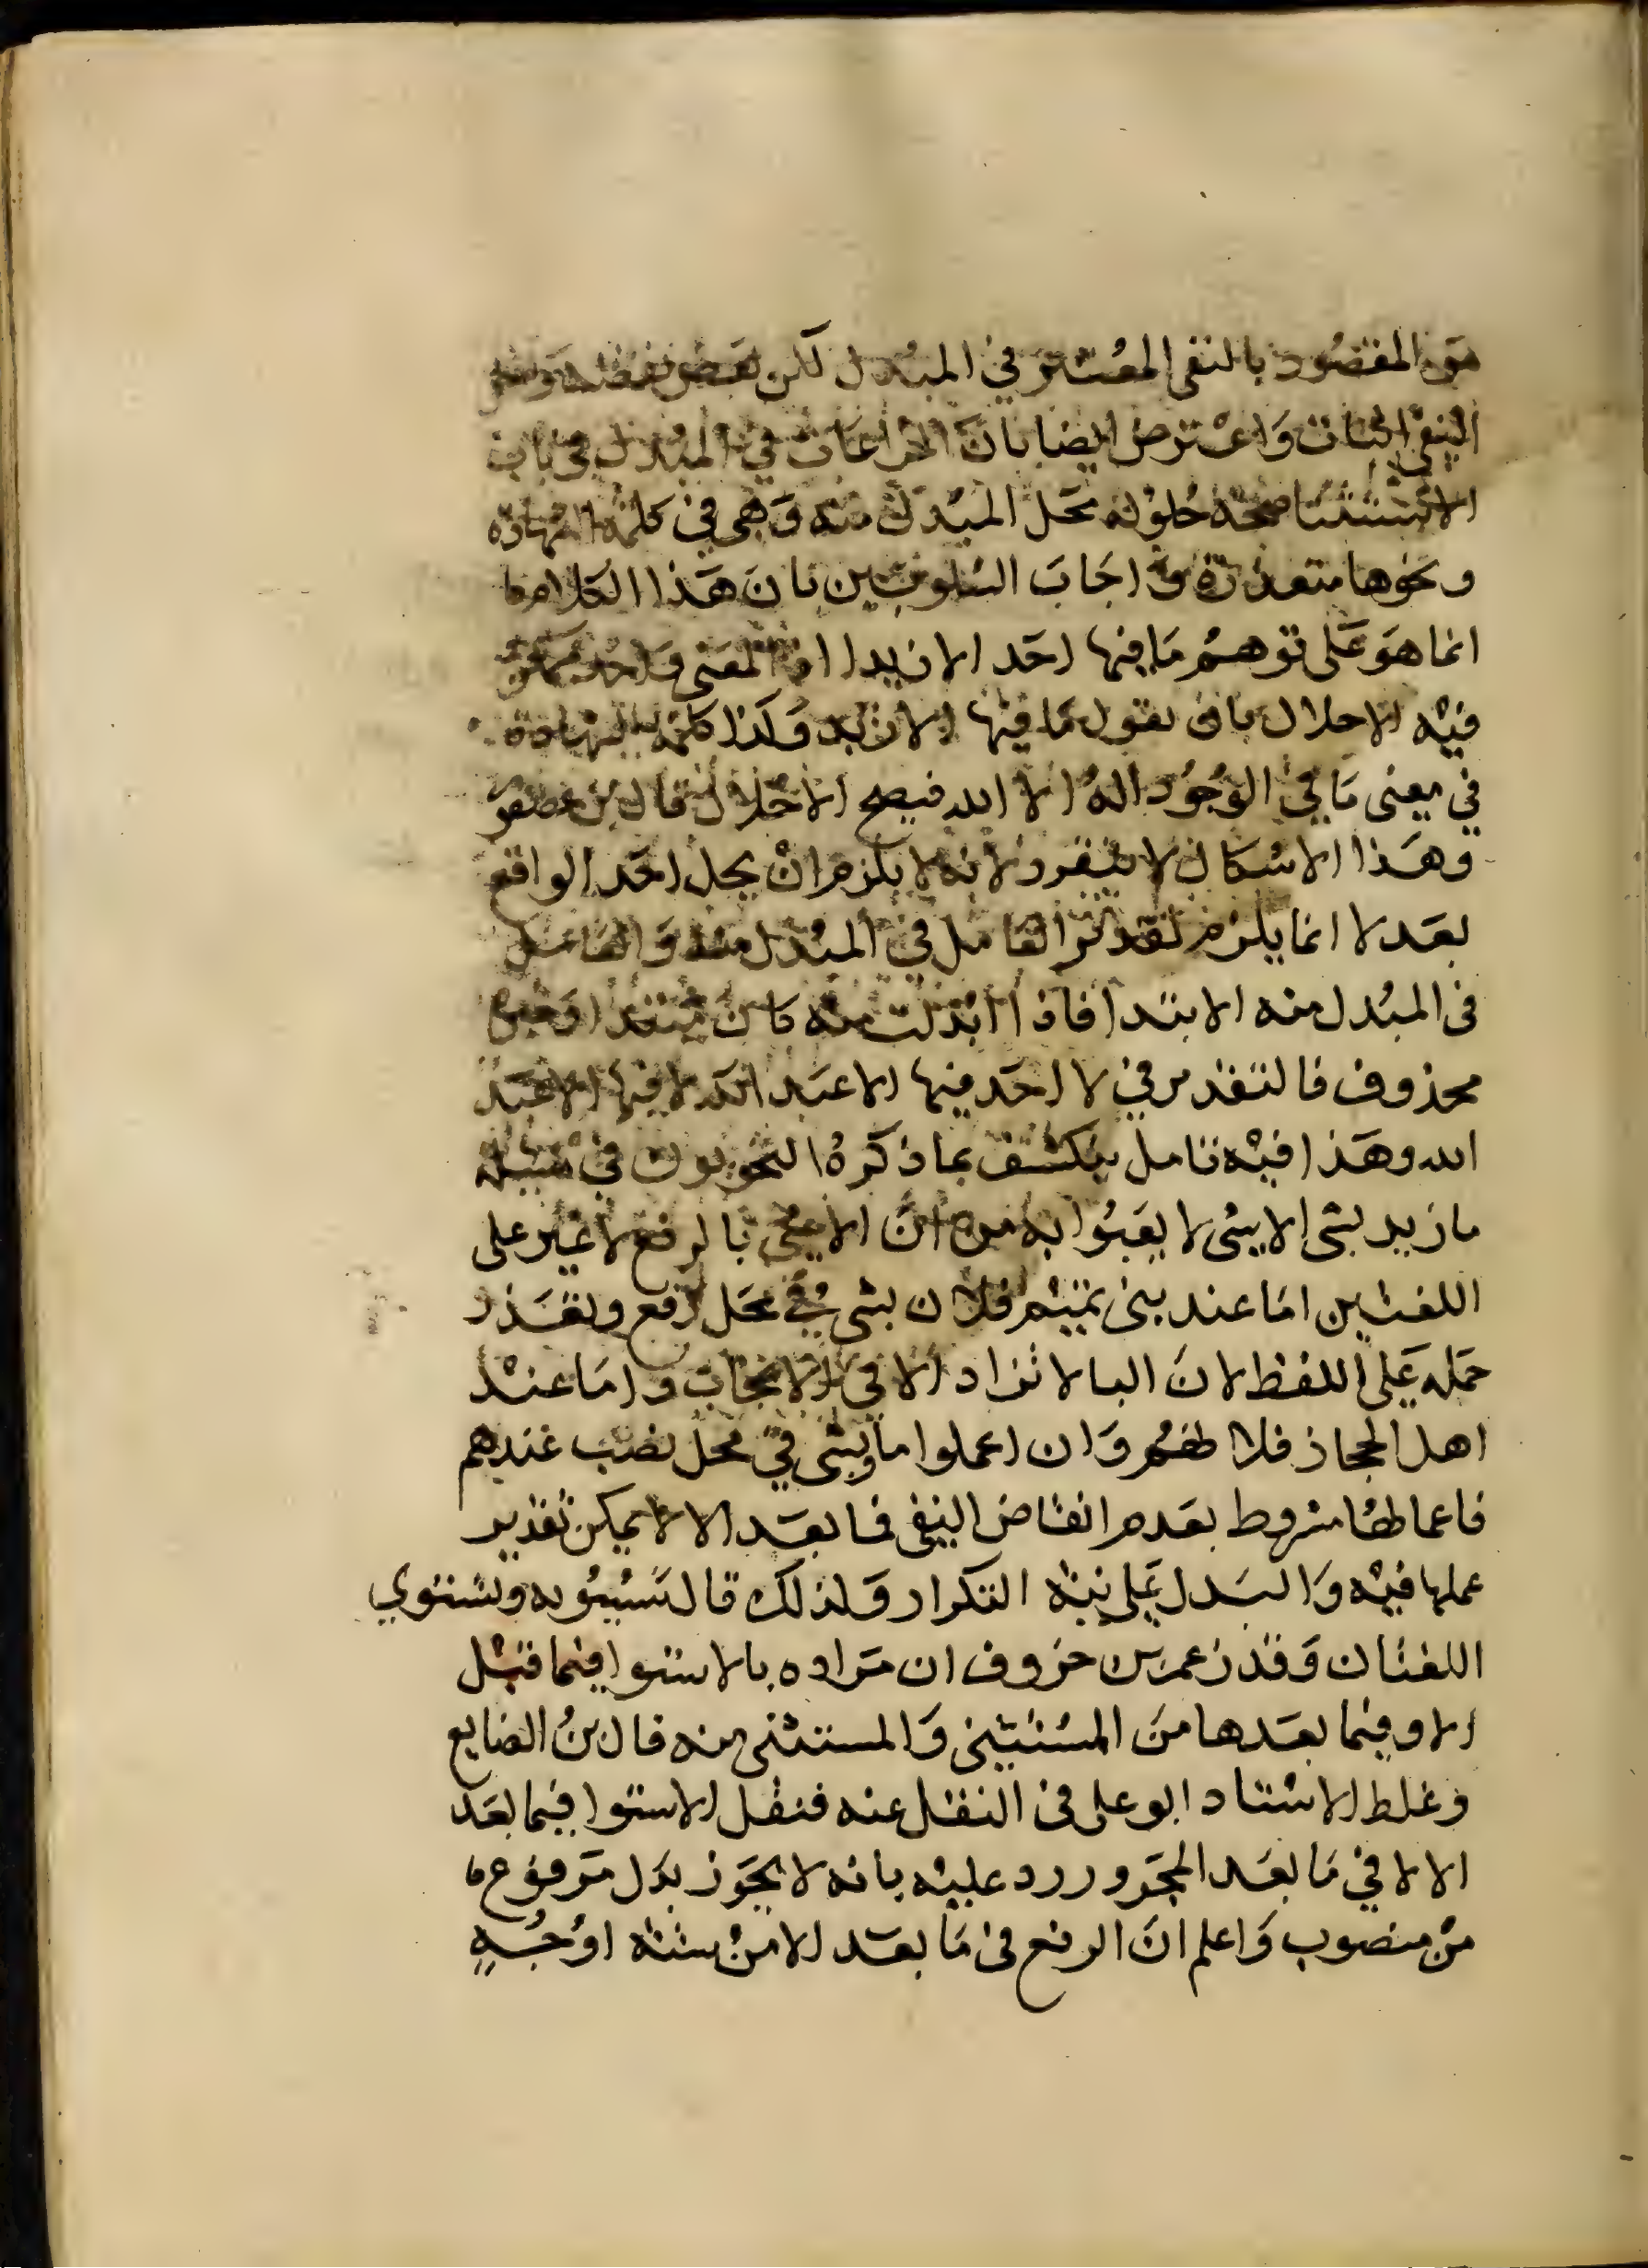 هو المقصود بالنفى المعتبر في المبدل لكن بعد نقضه ونقض
النفى اثبات وَاعترض ايضا بان المراعات في المبدل في باب
الاستثنا صحة حلوله محَل المبدل منه وَهي في كلمة الشهادة
ونحوها متعذرة وَاجَابَ الشلوبين بان هَذا الكلام
انما هوَ عَلى توهم مَا فيها احَد الا زيدا اذ المعنى وَاحد يمكن
فيْه الاحلال بان يقول مَا فيها الا زيد وَكذا كلمة الشهادة
في معنى مَا في الوُجُود اله الا الله فيصح الاحلال قال بن عصفور
وهَذا الاشكال لا يتقرر لانه لا يلزم انْ يحل احَد الواقع
بعَد لا انما يلزم تقدير العَامل في المبدل منه وَالعَامل
فى المبُدل منه الابتدا فاذا ابْدلت منه كان مبتدا وَخبره
محذوف فالتقدير في لا احَد فيها الا عبَد الله لا فيها الا عبَد
الله وهَذا فيْه تامل ينكشف بما ذكرهُ النحويون في مسئلة
ما زيد بشى الا شى لا يعَبوُا به من انَّ الا يجى بالرفع لا غير على
اللغتين امَا عند بنى تميم فلان بشى في محَل رفع وتعَذر
حمَله عَلى اللفظ لانَ البا لا تزاد الا في الا يجاب وامَا عنْد
اهل الحجاز فلا طهم وَان اعملوا ما وبشى في محل نصب عندهم
فاعمالها مشروط بعَدم انتقاض النفى فما بعَد الا لا يمكن تقدير
عملها فيْه وَالبَدل عَلى نية التكرار وَلذلك قال سَيبُويه وتستوي
اللغتان وَقد زعم بن خروف ان مَراده بالاستوا فيما قبْل
الا وفيما بعَدها منَ المستثنى وَالمستثنى منه قال بنُ الضايع
وغلط الاستاد ابو على فى النقل عنه فنقل الاستوا فيما بعَد
الا لا في مَا بعَد المجَرور رد عليْه بانه لا يجَوز بدَل مَرفوع
منْ منصوب وَاعلم انَ الرفع فى مَا بعَد الا منْ ستة اوْجُهٍ